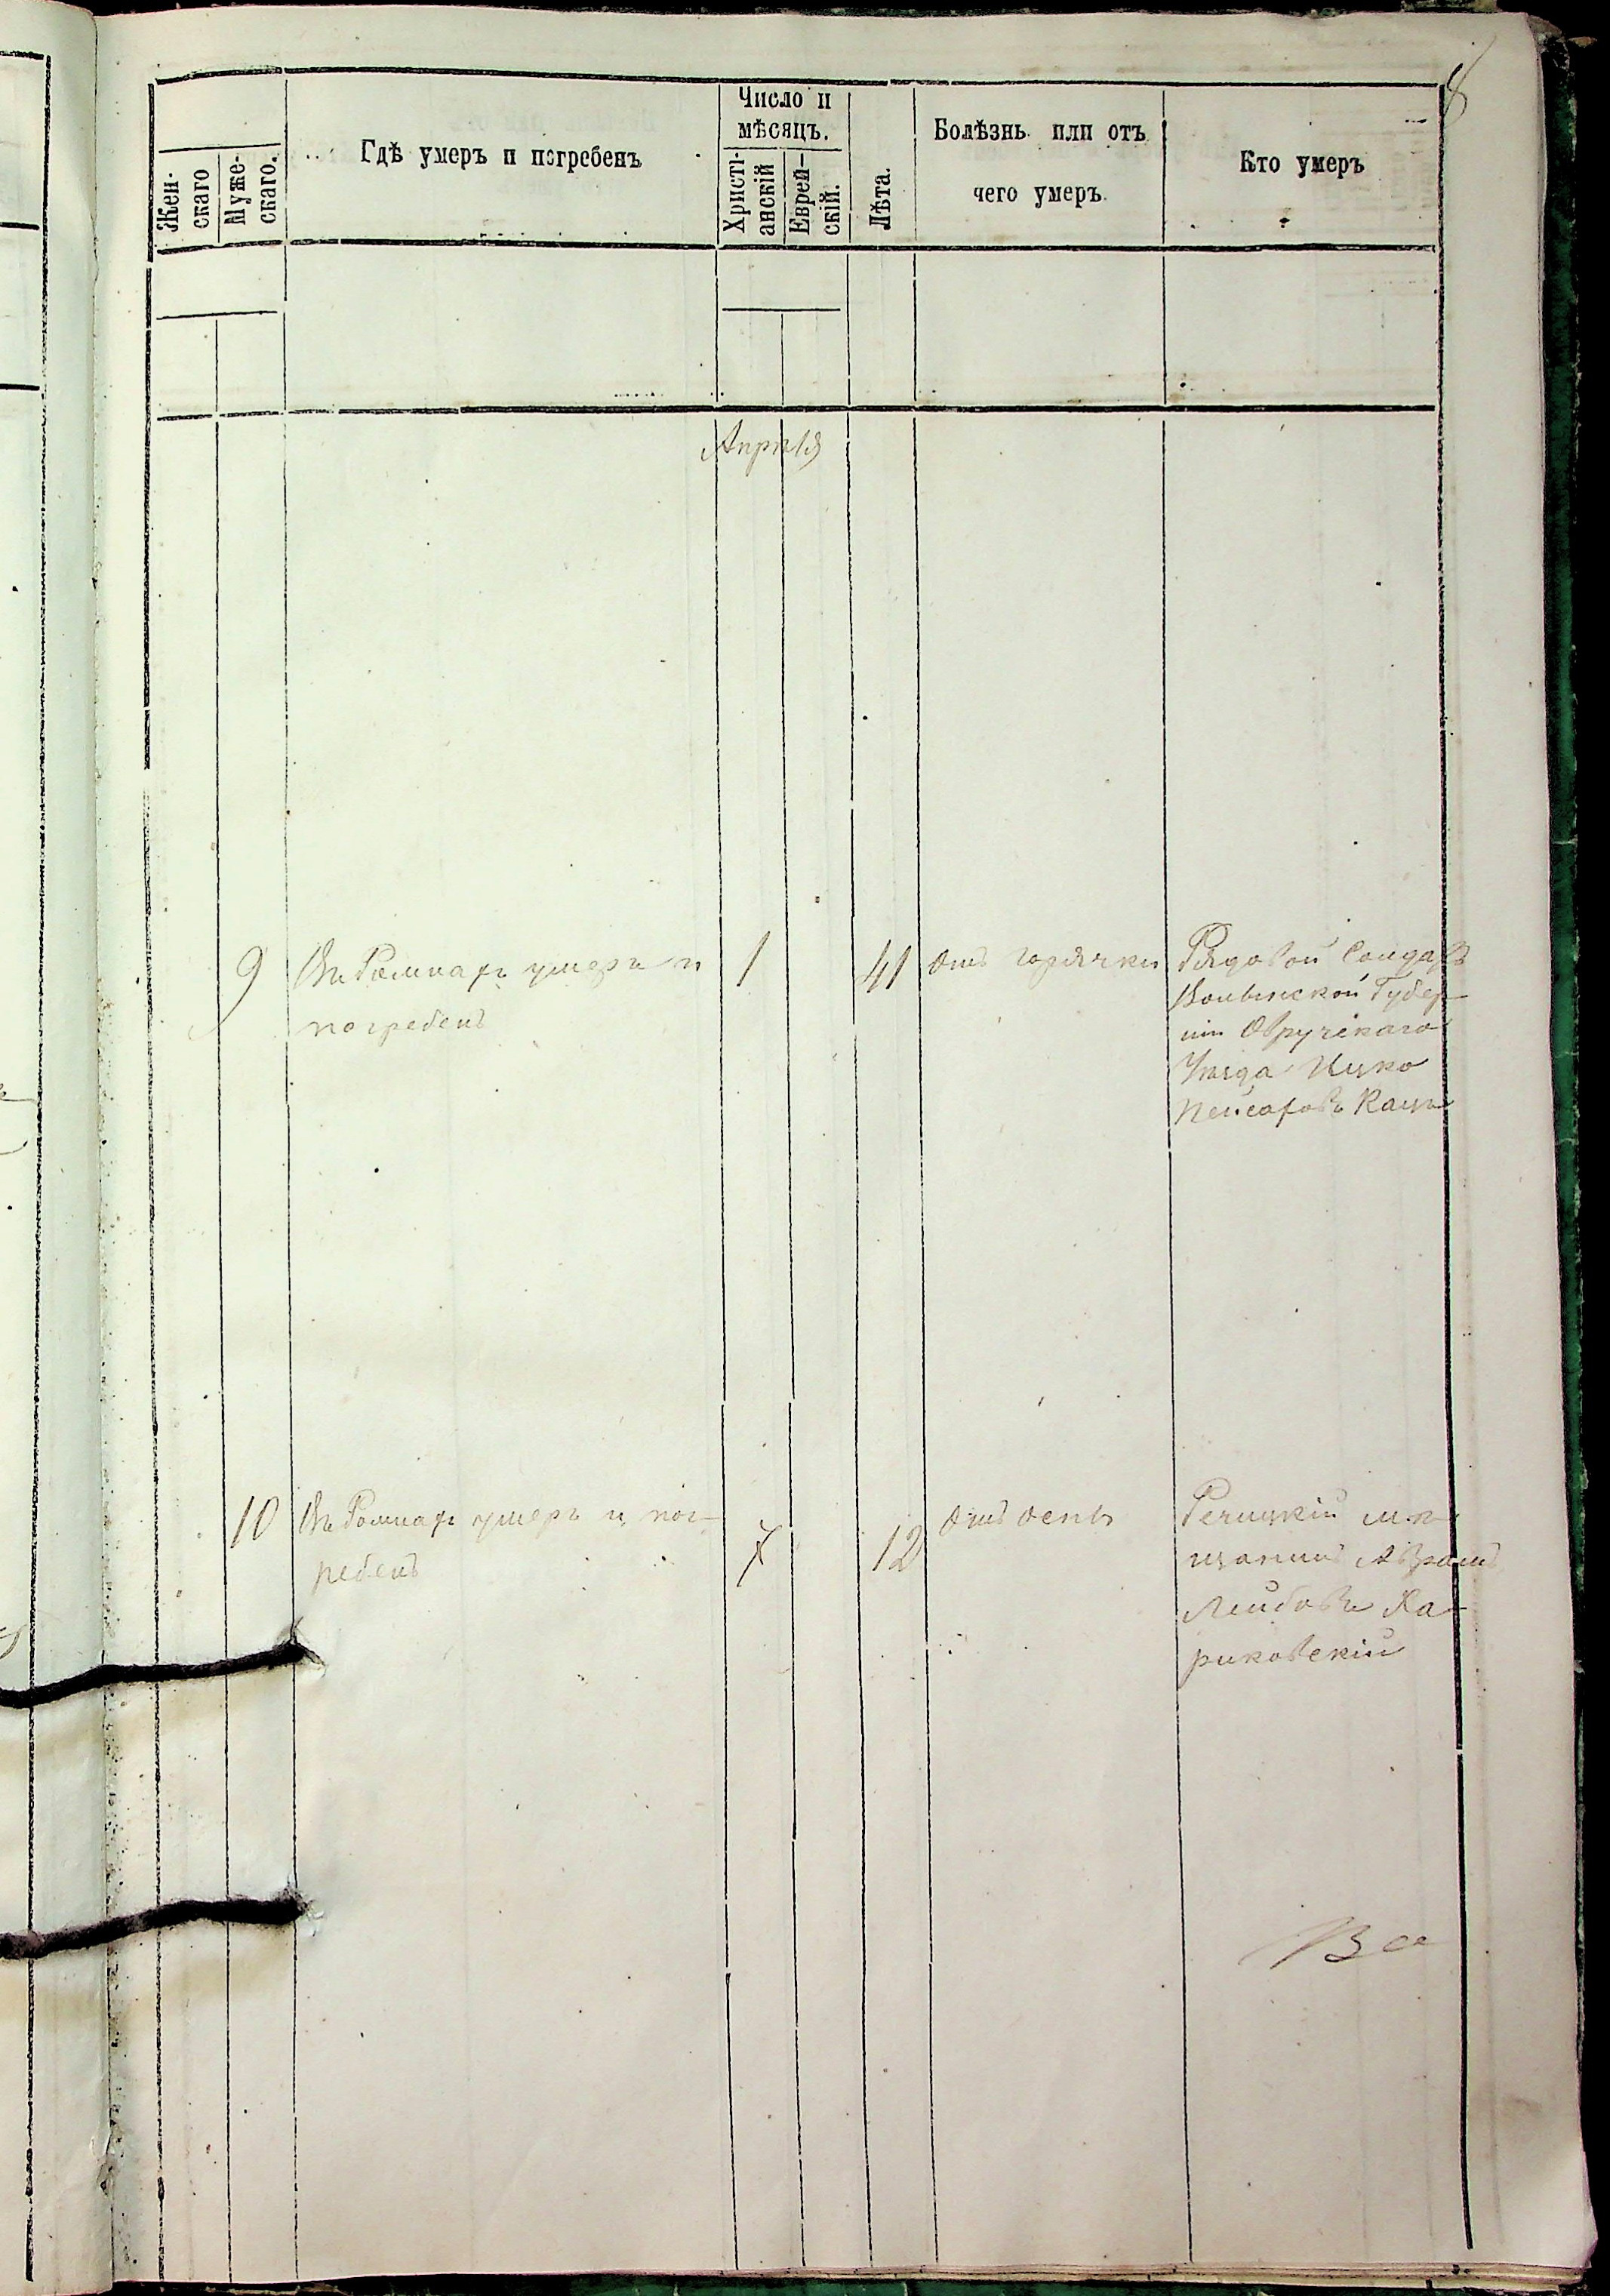 8
Жен-
скаго
Муже-
скаго.
Гдѣ умеръ и погребенъ
Число и
мѣсяцъ.
Христі-
анскій
Еврей-
скій.
Лѣта.
Болѣзнь или отъ
чего умеръ.
Кто умеръ
Апрѣля
9
Въ Ромнахъ умеръ и
погребенъ
1
41
отъ горячки
Рядовой Солдатъ
Волынской Губер-
ніи Овручскаго
Уѣзда Ицко
Пейсаховъ Кацъ
10
Въ Ромнахъ умеръ и пог-
ребенъ
7
12
отъ оспы
Речицкій мѣ-
щанинъ Абрамъ
Лейбовъ Ка-
риковскій